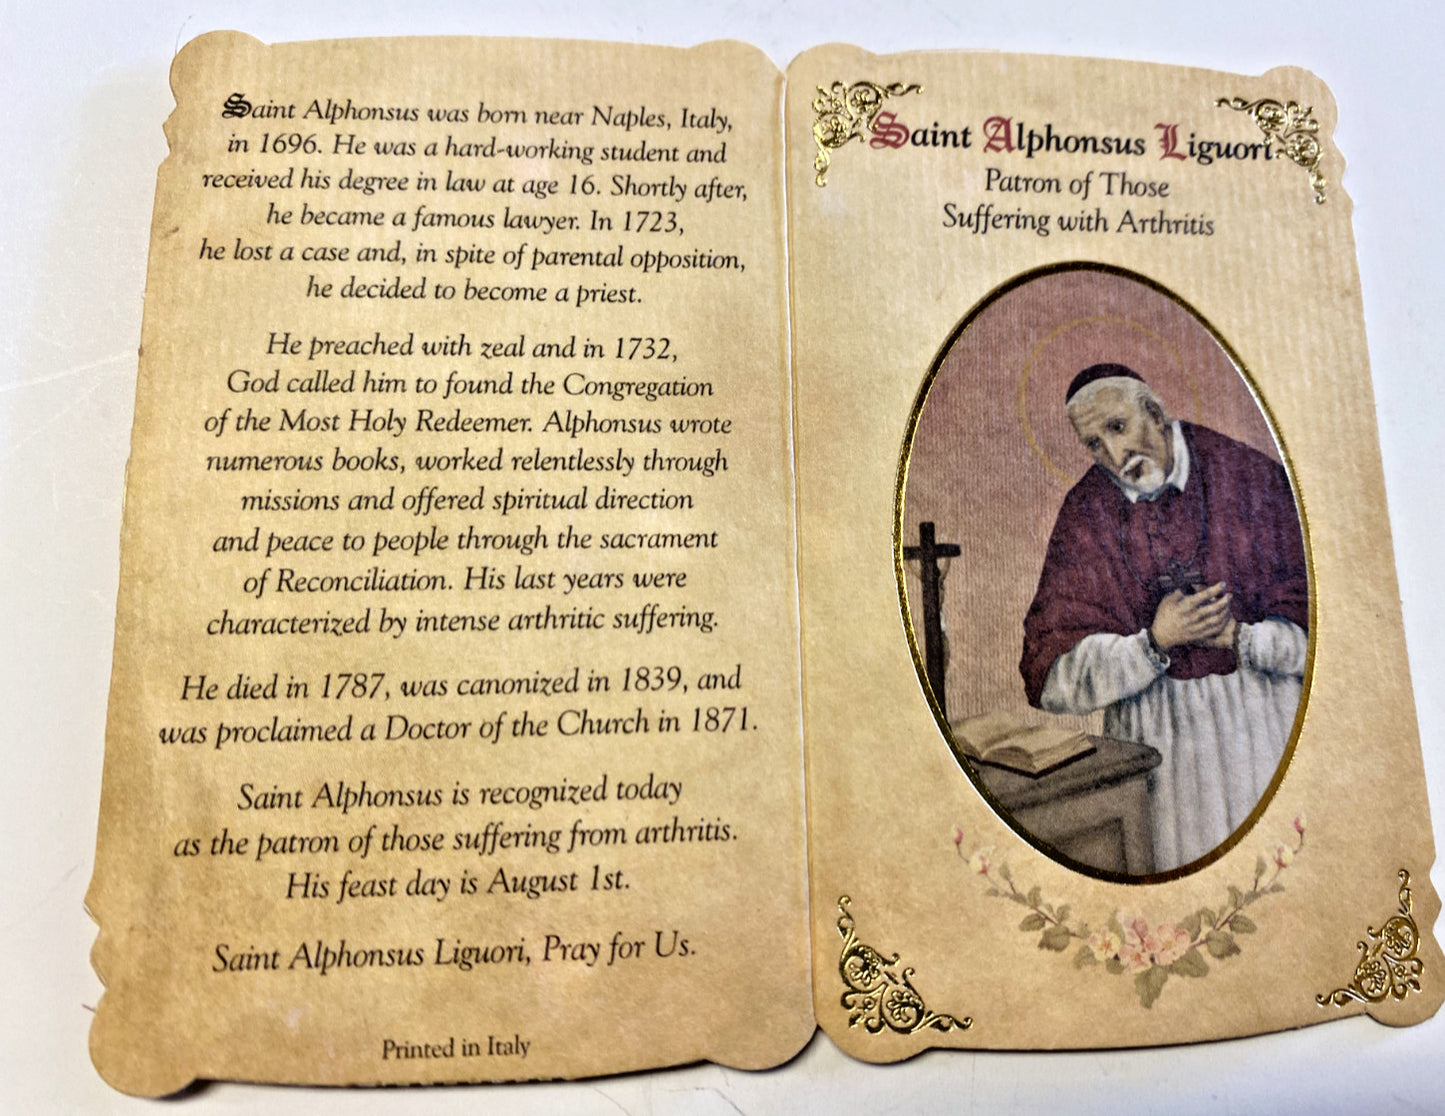 Saint Alphonsus was born near Naples, Italy,
in 1696. He was a hard-working student and
received his degree in law at age 16. Shortly after,
he became a famous lawyer. In 1723,
he lost a case and, in spite of parental opposition,
he decided to become a priest.
He preached with zeal and in 1732,
God called him to found the Congregation
of the Most Holy Redeemer. Alphonsus wrote
numerous books, worked relentlessly through
missions and offered spiritual direction
and peace to people through the sacrament
of Reconciliation. His last years were
characterized by intense arthritic suffering.
He died in 1787, was canonized in 1839, and
was proclaimed a Doctor of the Church in 1871.
Saint Alphonsus is recognized today
as the patron of those suffering from arthritis.
His feast day is August 1st.
Saint Alphonsus Liguori, Pray for Us.
Printed in Italy
Saint Alphonsus Liguori
Patron of Those
Suffering with Arthritis